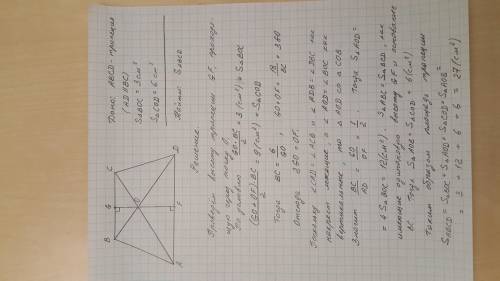 Дано: ABCD - трапеция
(AD||BC)
S△BOC = 3 см²
S△COD = 6 см²
Найти: S ABCD
B G C
O
A F D
Решение
Проведём высоту трапеции GF, проходя-
щую через точку O.
По условию GO·BC/2 = 3 (см²) и S△BOC
(GO+OF)·BC/2 = 9 (см²) = S△COD
Тогда BC = 6/GO, GO+OF = 18/BC = 3GO
Отсюда 2GO = OF.
Поскольку ∠CAD = ∠ACB и ∠ADB = ∠DBC как
накрест лежащие, а ∠AOD = ∠BOC как
вертикальные, то △AOD ∞ △COB
Значит BC/AD = GO/OF = 1/2 Тогда S△AOD =
= 4 S△BOC = 12 (см²). S△ABC = S△BCD, как
имеющие одинаковую высоту GF и основание
BC Тогда S△AOB = S△COD = 6 (см²)
Таким образом площадь трапеции
SABCD = S△BOC + S△AOD + S△COD + S△AOB =
= 3 + 12 + 6 + 6 = 27 (см²)